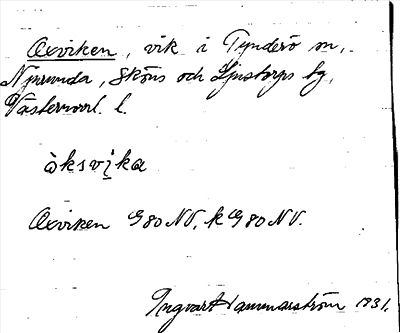 Oxviken, vik i Tynderö sn,
Njurunda, Sköns och Ljustorps tg,
Västernorrl. l.
òksvi̱ka
Oxviken G80NV, k G80NV.
Ingvart Hammarström 1931.